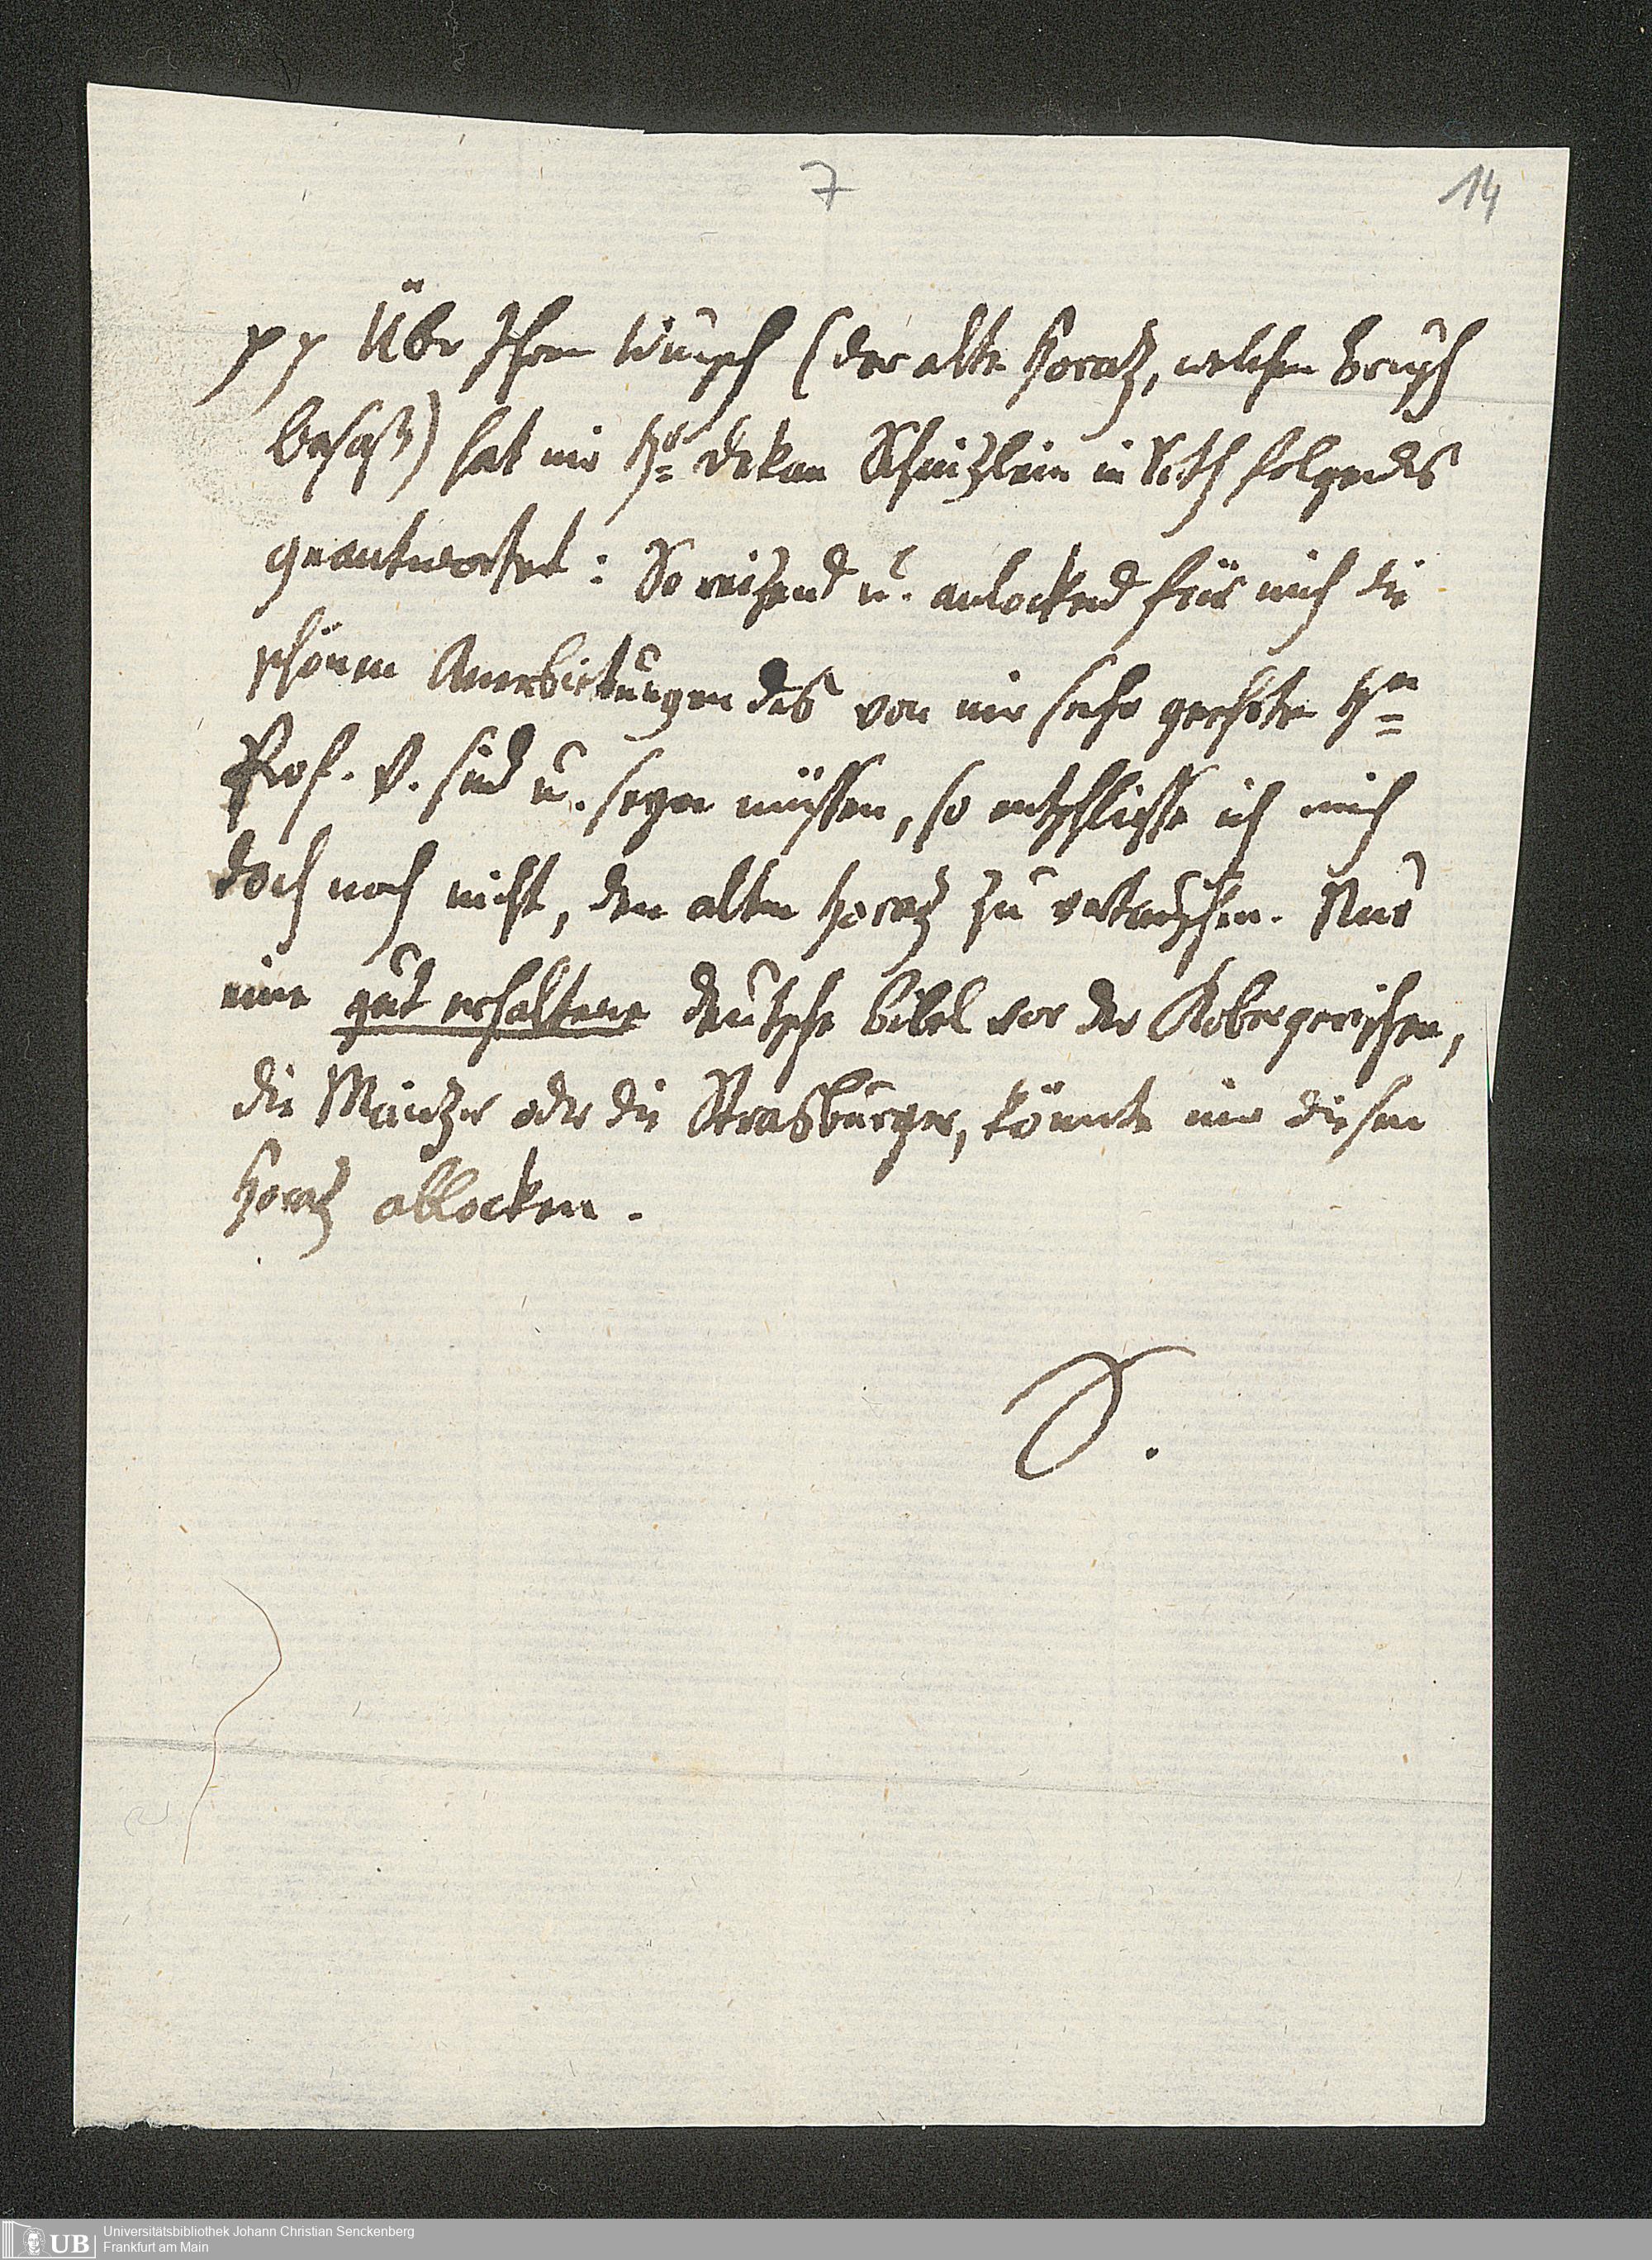 7
14
pp Über Ihren Wunsch (der alte Horaz, welchen
besaß) hat mir Hr Dekan Schnizlein in Roth folgendes
geantwortet: So reizend u. anlockend für mich die
schönen Anerbietungen des von mir sehr geehrten Hn
Prof. V. sind u. seyn müssen, so entschliesse ich mich
doch noch nicht, den alten Horaz zu vertauschen. Nur
eine gut erhaltene deutsche Bibel vor der Kobergerischen,
die Mainzer oder die Strasburger, könnte mir diesen
Horaz ablocken.
UB
Universitätsbibliothek Johann Christian Senckenberg
Frankfurt am Main